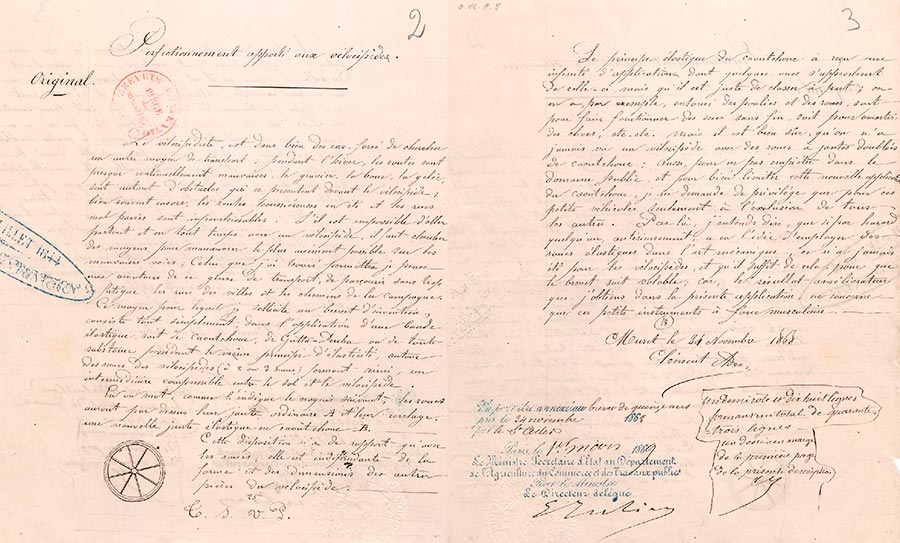 2
Perfectionnement apporté aux vélocipèdes.
Original.
BREVETS
Le vélocipédiste, est dans bien des cas, forcé de chercher
un autre moyen de transport ; pendant l'hiver, les routes sont
presque continuellement mauvaises. le gravier, la boue, la gelée,
sont autant d'obstacles qui se présentent devant le vélocipède,
bien souvent encore, les routes poussiéreuses en été et les rues
mal pavées sont infranchissables. S'il est impossible d'aller
partout et en tout temps avec un vélocipède, il faut chercher
des moyens pour manœuvrer le plus aisément possible sur les
mauvaises voies, Celui que j'ai trouvé permettra je pense
aux amateurs de ce genre de transport, de parcourir sans trop
fatigue les rues des villes et les chemins de la campagne.
Ce moyen pour lequel je sollicite un brevet d'invention,
consiste tout simplement, dans l'application d'une bande
élastique, soit de caoutchouc, de Gutta-Percha ou de toute
substance pendant le même principe d'élasticité, autour
des roues des vélocipèdes (à 2 ou 3 roues) formant ainsi un
intermédiaire compressible entre le sol et le vélocipède.
En un mot, comme l'indique le croquis suivant, les roues
auront par dessus leur jante ordinaire A et leur cerclage,
une nouvelle jante élastique en caoutchouc B.
Cette disposition n'a de rapport qu'avec
les roues, elle est indépendante de la
forme et des dimensions des autres
pièces du vélocipède.
T. S. V. P.
3
Le principe élastique du caoutchouc a reçu une
infinité d'applications dont quelques unes s'approchent
de celle-ci mais qu'il est juste de classer à part ; on
en a par exemple, entouré des poulies et des roues, soit
pour faire fonctionner des scies sans fin, soit pour amortir
des chocs, etc. etc. mais il est bien sûr, qu'on n'a
jamais vu un vélocipède avec des roues à jantes doublées
de caoutchouc ; Aussi, pour ne pas empiéter dans le
domaine public, et pour bien limiter cette nouvelle application
du caoutchouc, je ne demande de privilège que pour ces
petits véhicules seulement à l'exclusion de tous
les autres. Par là, j'entends dire, que si par hasard
quelqu'un, antérieurement, a eu l'idée d'employer des
roues élastiques dans l'art mécanique, ce n'a jamais
été pour les vélocipèdes, et qu'il suffit de cela, pour que
le brevet soit valable ; car, le résultat améliorateur
que j'obtiens dans la présente application, ne concerne
que ces petits instruments à force musculaire.
Muret le 24 Novembre 1868
Clément Ader
Vu pour être annexé au brevet de quinze ans
pris le 24 novembre 1868
par le Sr Ader
Paris le 1er mars 1869
Le Ministre Secrétaire d'État au Département
de l'Agriculture, du Commerce et des Travaux publics
Pour le Ministre
Le Directeur délégué
un demi rôle et dix huit lignes
formant un total de quarante-
trois lignes
de la première page
de la présente description